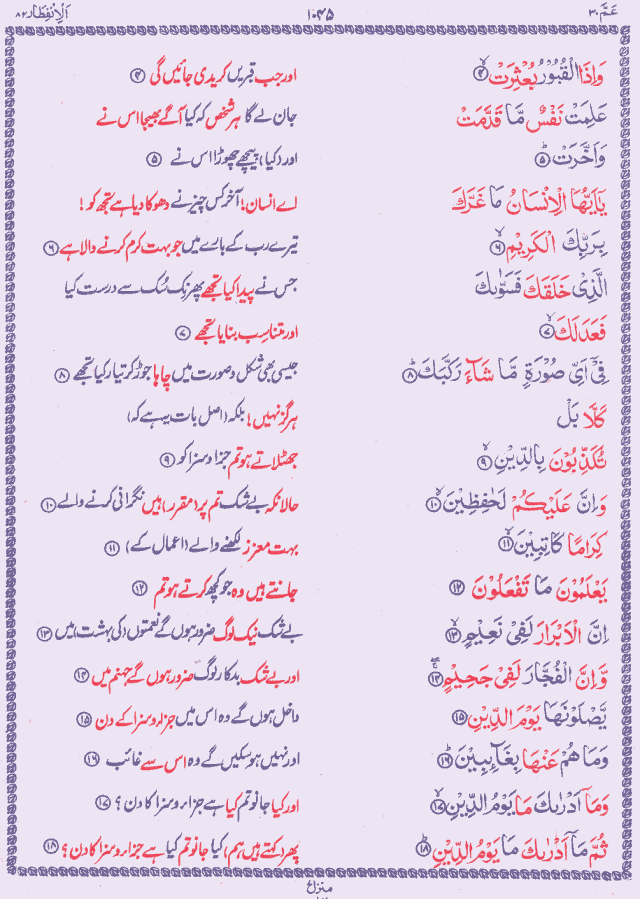 عَمَّ ٣٠ ١٠٤٥ اَلْاِنْفِطَار ٨٢
وَاِذَا الْقُبُوْرُ بُعْثِرَتْ ﴿٤﴾ اور جب قبریں کریدی جائیں گی ﴿۴﴾
عَلِمَتْ نَفْسٌ مَّا قَدَّمَتْ جان لے گا ہر شخص کہ کیا آگے بھیجا اس نے
وَاَخَّرَتْ ﴿٥﴾ اور (کیا) پیچھے چھوڑا اس نے ﴿۵﴾
يٰۤاَيُّهَا الْاِنْسَانُ مَا غَرَّكَ اے انسان! آخر کس چیز نے دھوکا دیا ہے تجھ کو !
بِرَبِّكَ الْكَرِيْمِ ﴿٦﴾ تیرے رب کے بارے میں جو بہت کرم کرنے والا ہے ﴿۶﴾
الَّذِيْ خَلَقَكَ فَسَوّٰىكَ جس نے پیدا کیا تجھے پھر نِک سُک سے درست کیا
فَعَدَلَكَ ﴿٧﴾ اور متناسب بنایا تجھے ﴿۷﴾
فِيْۤ اَيِّ صُوْرَةٍ مَّا شَآءَ رَكَّبَكَ ﴿٨﴾ جیسی بھی شکل و صورت میں چاہا جوڑ کر تیار کیا تجھے ﴿۸﴾
كَلَّا بَلْ ہرگز نہیں! بلکہ (اصل بات یہ ہے کہ)
تُكَذِّبُوْنَ بِالدِّيْنِ ﴿٩﴾ جھٹلاتے ہو تم جزا و سزا کو ﴿۹﴾
وَاِنَّ عَلَيْكُمْ لَحٰفِظِيْنَ ﴿١٠﴾ حالانکہ بے شک تم پر (مقرر) ہیں نگرانی کرنے والے ﴿۱۰﴾
كِرَامًا كَاتِبِيْنَ ﴿١١﴾ بہت معزز لکھنے والے (اعمال کے) ﴿۱۱﴾
يَعْلَمُوْنَ مَا تَفْعَلُوْنَ ﴿١٢﴾ جانتے ہیں وہ جو کچھ کرتے ہو تم ﴿۱۲﴾
اِنَّ الْاَبْرَارَ لَفِيْ نَعِيْمٍ ﴿١٣﴾ بے شک نیک لوگ ضرور ہوں گے نعمتوں (کی بہشت) میں ﴿۱۳﴾
وَّاِنَّ الْفُجَّارَ لَفِيْ جَحِيْمٍ ﴿١٤﴾ اور بے شک بدکار لوگ ضرور ہوں گے جہنم میں ﴿۱۴﴾
يَّصْلَوْنَهَا يَوْمَ الدِّيْنِ ﴿١٥﴾ داخل ہوں گے وہ اس میں جزاء و سزا کے دن ﴿۱۵﴾
وَمَا هُمْ عَنْهَا بِغَآئِبِيْنَ ﴿١٦﴾ اور نہیں ہو سکیں گے وہ اس سے غائب ﴿۱۶﴾
وَمَاۤ اَدْرٰىكَ مَا يَوْمُ الدِّيْنِ ﴿١٧﴾ اور کیا جانو تم کیا ہے جزاء و سزا کا دن ؟ ﴿۱۷﴾
ثُمَّ مَاۤ اَدْرٰىكَ مَا يَوْمُ الدِّيْنِ ﴿١٨﴾ پھر (کہتے ہیں ہم) کیا جانو تم کیا ہے جزاء و سزا کا دن ؟ ﴿۱۸﴾